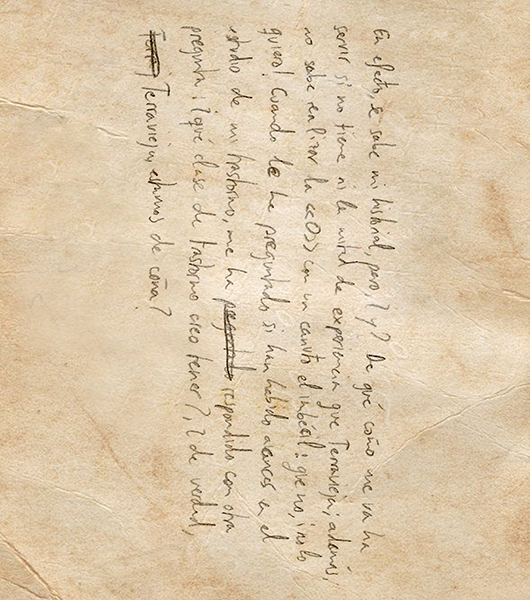 En efecto, se sabe mi historial, pero, ¿y? De qué coño me va ha
servir si no tiene ni la mitad de experiencia que Terravieja; además,
no sabe realizar la «O» con un canuto el imbécil: que no, ¡no lo
quiero! Cuando le he preguntado si han habido avances en el
estudio de mi trastorno, me ha respondido con otra
pregunta: ¿qué clase de trastorno creo tener?, ¿de verdad,
Terravieja, estamos de coña?